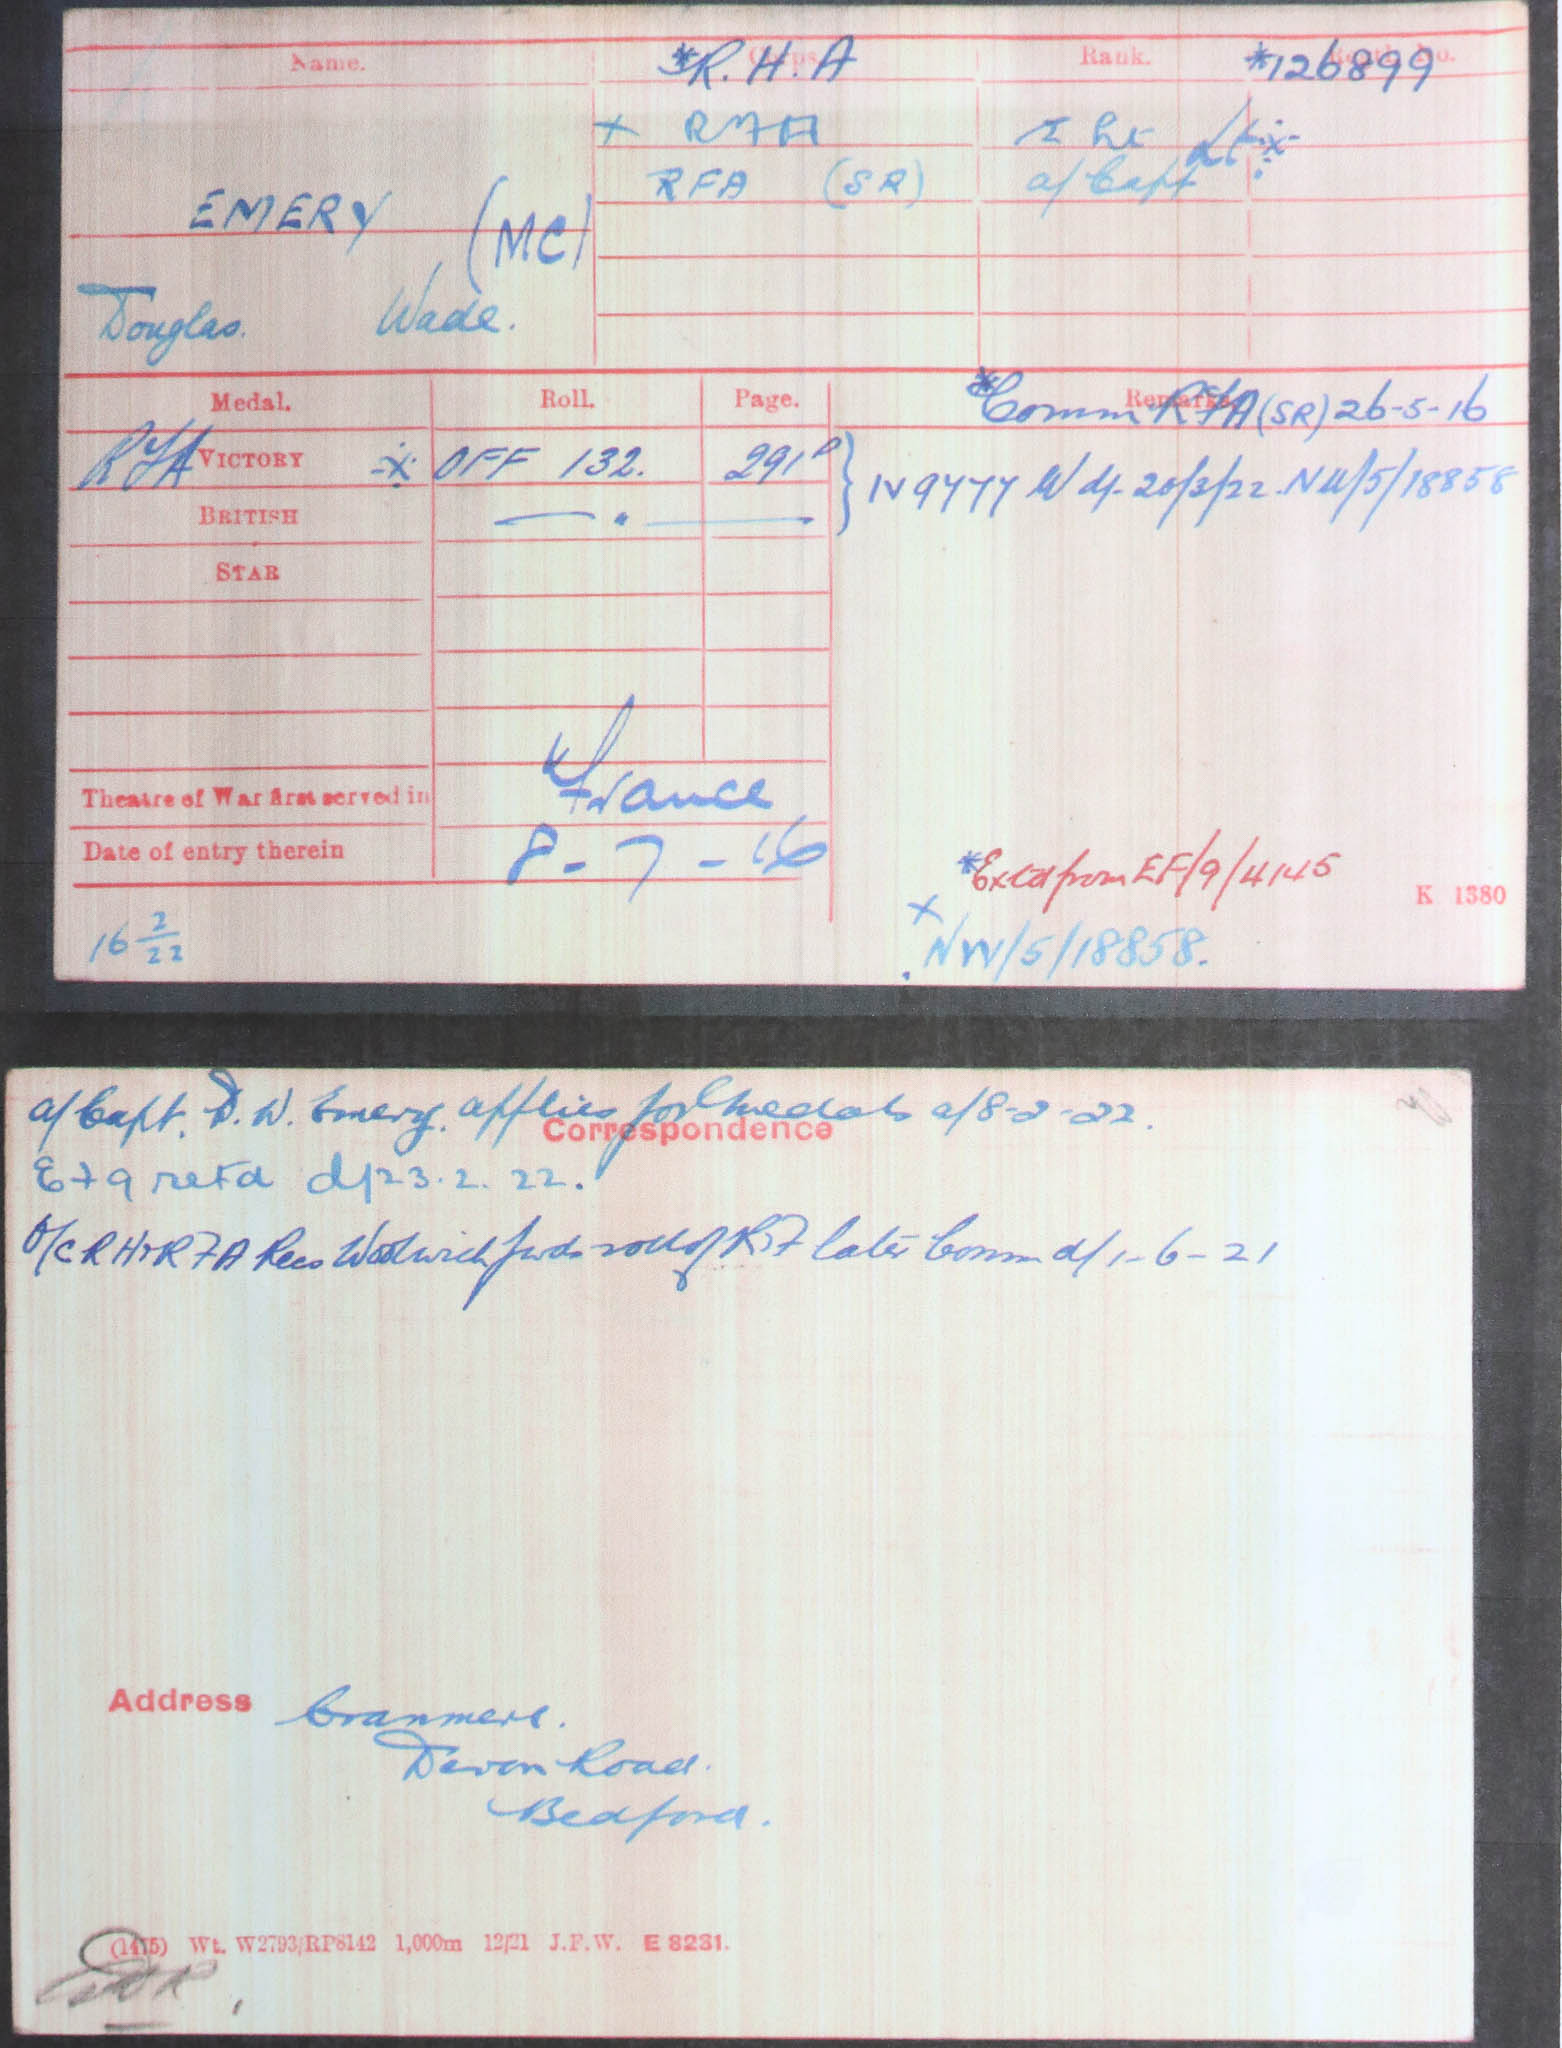 Name. Corps. Rank. Regtl. No.
*R. H. A *126899
x RFA 2 Lt
RFA (SR) a/Capt Lt
EMERY (MC)
Douglas. Wade.
Medal. Roll. Page. Remarks.
*Comm RFA (SR) 26-5-16
RFA VICTORY OFF 132. 291 } IV 9777 W d/- 20/3/22. NW/5/18858
BRITISH — " —
STAR
Theatre of War first served in France
Date of entry therein 8-7-16
*Extd from EF/9/4145
K 1380
16 2/22
x NW/5/18858.
a/Capt. D. W. Emery. applies for medals d/8-2-22.
Correspondence
EF9 retd d/23.2.22.
O/C RH & RFA Recs Woolwich fwds roll of R & F later Comm d/1-6-21
Address Cranmere.
Devon Road.
Bedford.
(1475) Wt. W2793/RP8142 1,000m 12/21 J.F.W. E 8231.